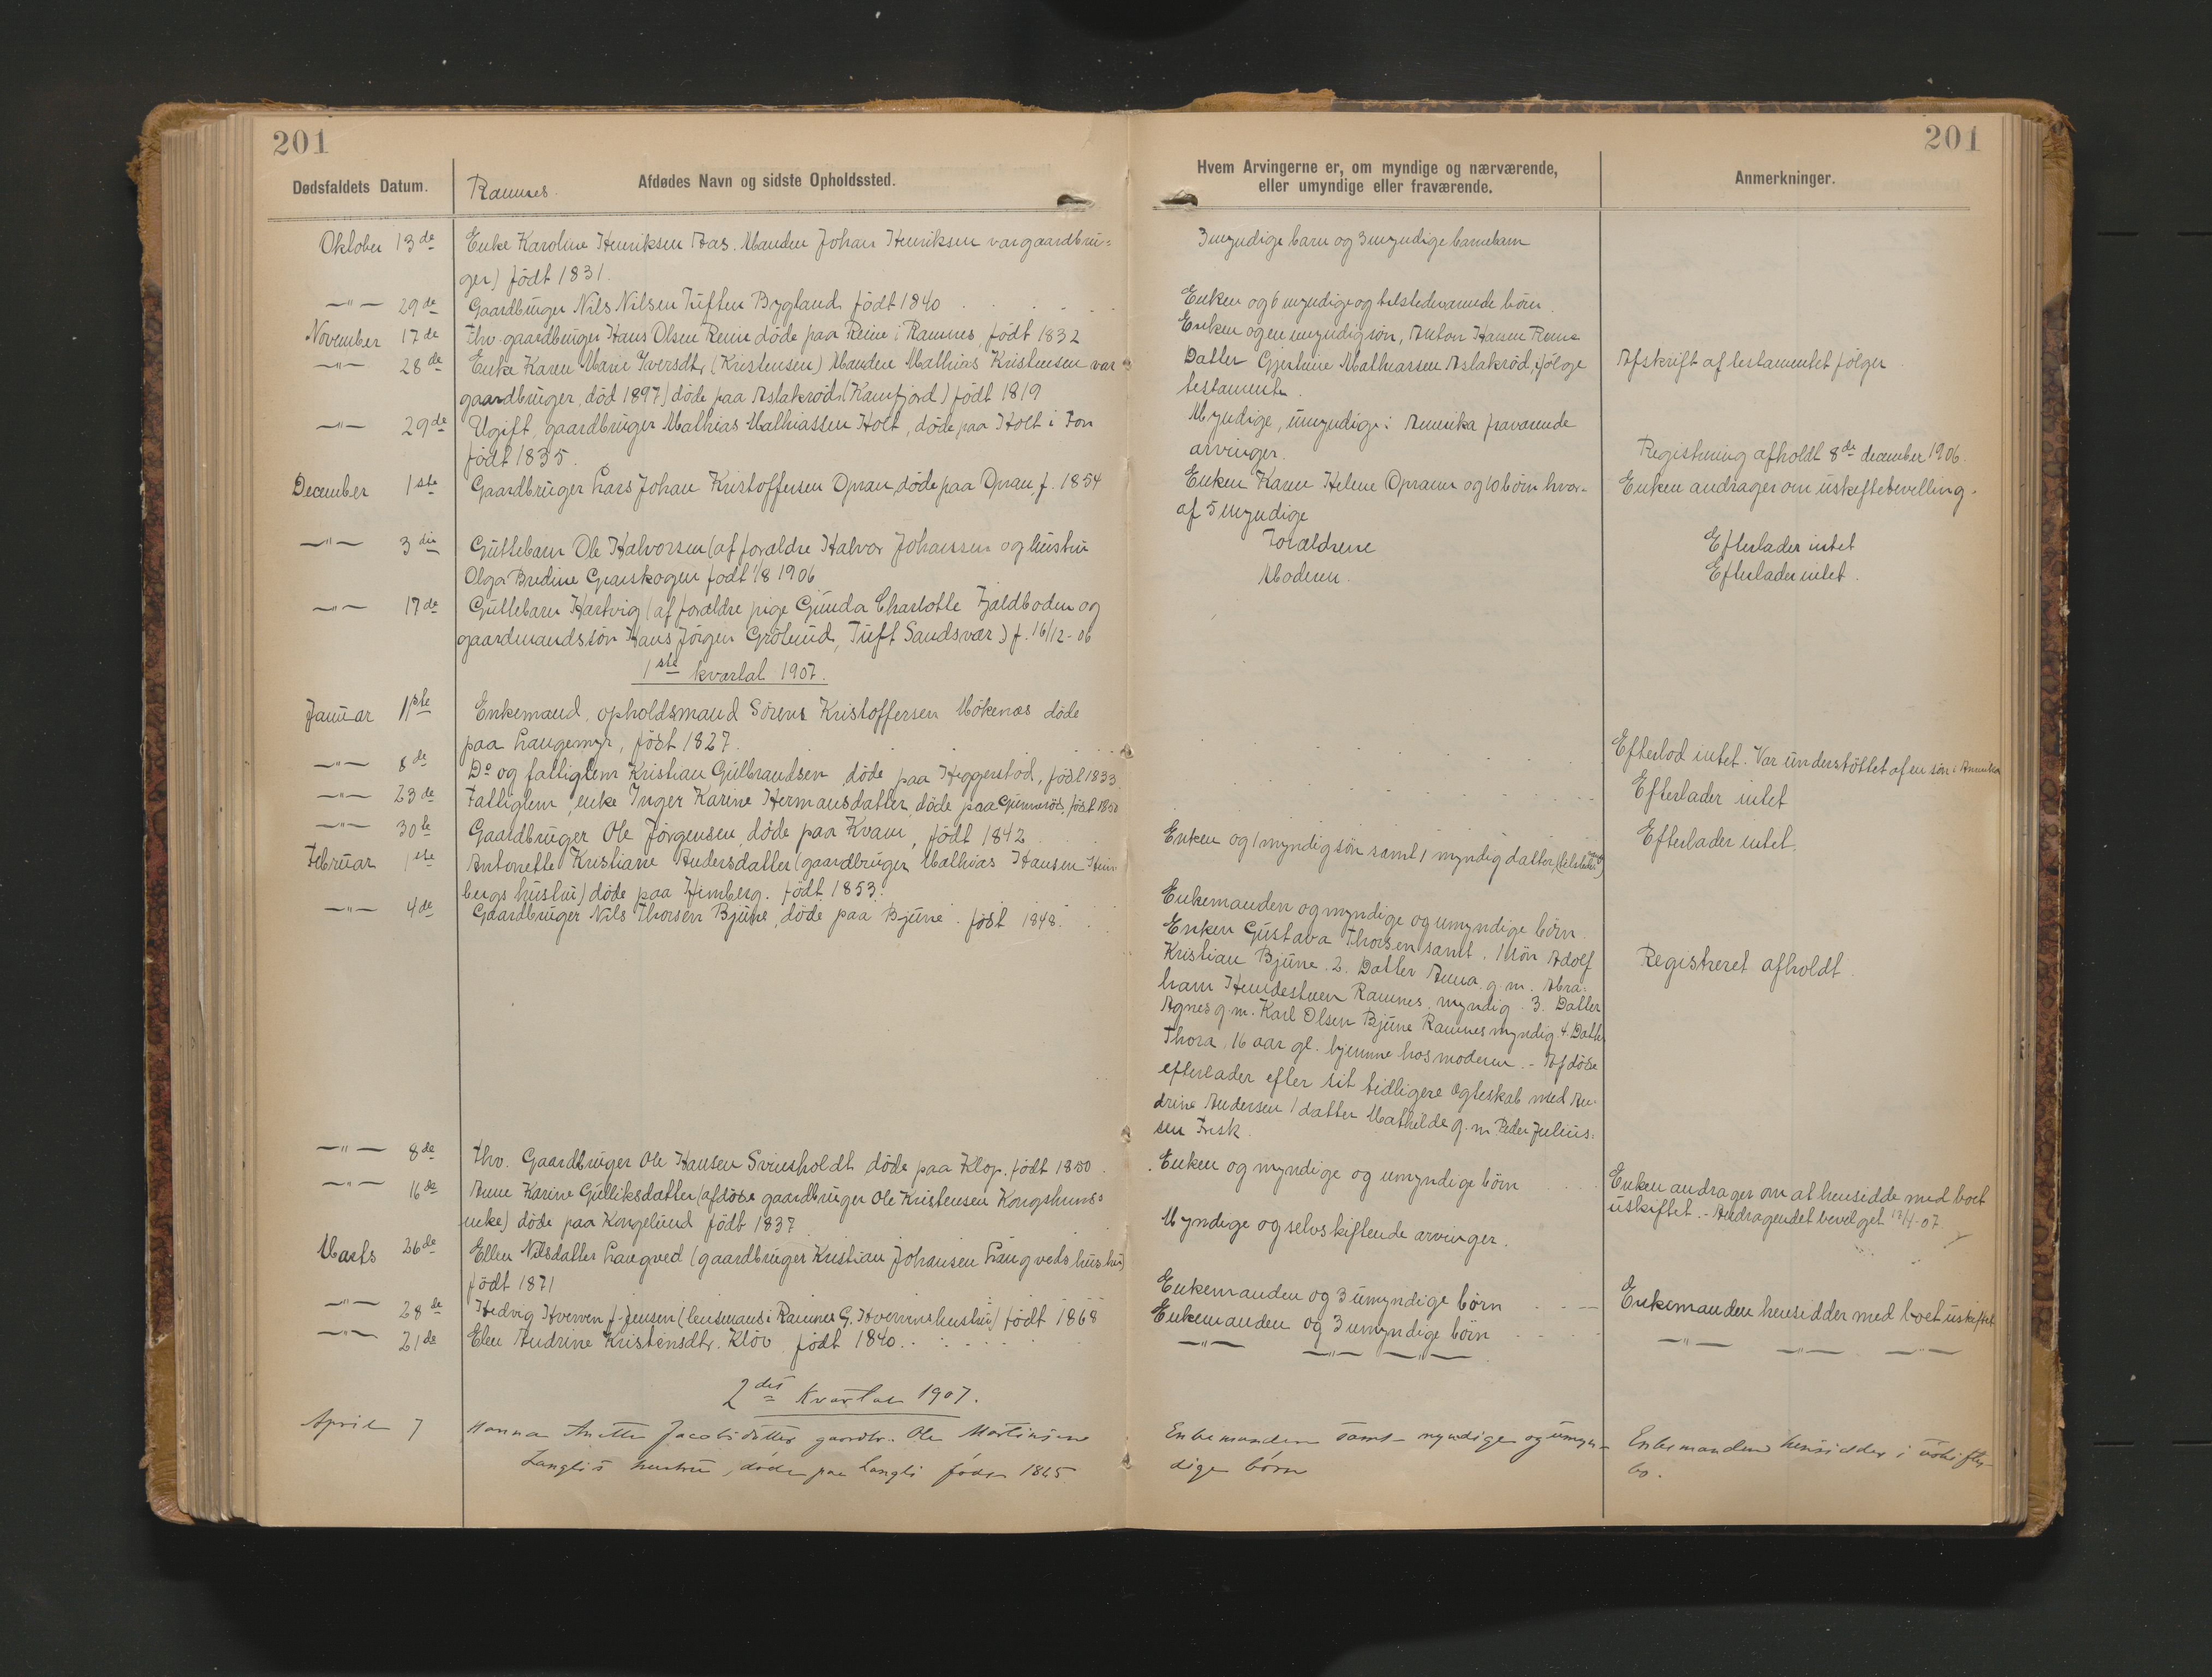 201
201
Dødsfaldets Datum.
Ramnes.
Afdødes Navn og sidste Opholdssted.
Hvem Arvingerne er, om myndige og nærværende,
eller umyndige eller fraværende.
Anmerkninger.
Oktober 13de Enke Karoline Henriksen Aas. Manden Johan Henriksen var gaardbru=
ger) födt 1831.
3 myndige barn og 3 myndige barnebarn
—"— 29de Gaardbruger Nils Nilsen Tuften Bygland, födt 1840
Enken og 6 myndige og tilstedeværende börn.
November 17de Fhv. gaardbruger Hans Olsen Reine döde paa Reine i Ramnes, födt 1832
Enken og en myndig sön, Anton Hansen Reine
—"— 28de Enke Karen Marie Iversdt. (Kristensen) Manden Mathias Kristensen var
gaardbruger, död 1897) döde paa Aslakröd (Ramfjord) födt 1819
Datter Mathiassen Aslakröd, ifölge
testamente.
Afskrift af testamentet fölger
—"— 29de Ugift, gaardbruger Mathias Mathiassen Holt, döde paa Holt i Fon
födt 1835.
Myndige, umyndige i Amerika fraværende
arvinger.
Registrering afholdt 8de december 1906.
December 1ste Gaardbruger Lars Johan Kristoffersen Opran, döde paa Opran, f. 1854
Enken Karen Helene Oprann og 10 börn hvor-
af 5 myndige
Enken andrager om uskiftebevilling.
—"— 3die Guttebarn Ole Halvorsen (af forældre Halvor Johanssen og hustru
Olga Bredine Graeskogen födt 1/8 1906
Forældrene
Efterlader intet
—"— 17de Guttebarn Hartvig (af forældre pige Gunda Charlotte Fjeldboden og
gaardmandssön Hans Jörgen Grölund, Tuft Sandsvær) f. 16/12-06
Moderen.
Efterlader intet.
1ste kvartal 1907.
Januar 1ste Enkemand, opholdsmand Sörens Kristoffersen Mökenæs döde
paa Langemyr, födt 1827.
Efterlod intet. Var understöttet af en sön i Amerika
—"— 8de Do og fattiglem Kristian Gulbrandsen döde paa Heggerstod, födt 1833.
Efterlader intet
—"— 23de Fattiglem, enke Inger Karine Hermansdatter, döde paa Gunneröd, födt 1830
Efterlader intet.
—"— 30te Gaardbruger Ole Jörgensen, döde paa Kvam, födt 1842
Enken og 1 myndig sön samt 1 myndig datter,
Februar 1ste Antonette Kristiane Andersdatter (gaardbruger Mathias Hansen Him
bergs hustru) döde paa Himberg. födt 1853.
Enkemanden og myndige og umyndige börn.
—"— 4de Gaardbruger Nils Thorsen Bjune, döde paa Bjune. födt 1848.
Enken Gustava Thorsen samt. 1 Sön Adolf
Kristian Bjune. 2. Datter Anna g. m. Abra-
ham Hendestuen Ramnes, myndig. 3. Datter
Agnes g. m. Karl Olsen Bjune Ramnes myndig. 4. Datter
Thora, 16 aar gl. hjemme hos moderen. - Afdöde
efterlader efter sit tidligere ægteskab med An-
drine Andersen 1 datter Mathilde g. m. Peder Julius-
sen Fresk.
Registreret afholdt.
—"— 8de Fhv. Gaardbruger Ole Hansen Svinsholdt döde paa Klop. födt 1850.
Enken og myndige og umyndige börn
Enken andrager om at hensidde med boet
uskiftet. - Andragendet bevilget 13/4-07.
—"— 16de Anne Karine Gulliksdatter (afdöde gaardbruger Ole Kristensen
enke) döde paa Kongelund födt 1837
Myndige og selvskiftende arvinger.
Marts 26de Ellen Nilsdatter Langved (gaardbruger Kristian Johansen Langveds hustru)
födt 1871
Enkemanden og 3 umyndige börn
Enkemanden hensidder med boet uskiftet
—"— 28de Hedvig Hverven f. Jensen (lensmans i Ramnes G. Hvervens hustru) födt 1868
Enkemanden og 3 umyndige börn
—"— —"— —"—
—"— 21de Elen Andrine Kristensdtr. Klöv födt 1840.
—"— —"— —"—
2det Kvartal 1907.
April 7 Hanna Anette Jacobsdatter gaardbr. Ole Martinsen
Langlis hustru, döde paa Langli födt 1865.
Enkemanden samt myndige og umyn-
dige börn
Enkemanden hensidder i uskiftet
bo.